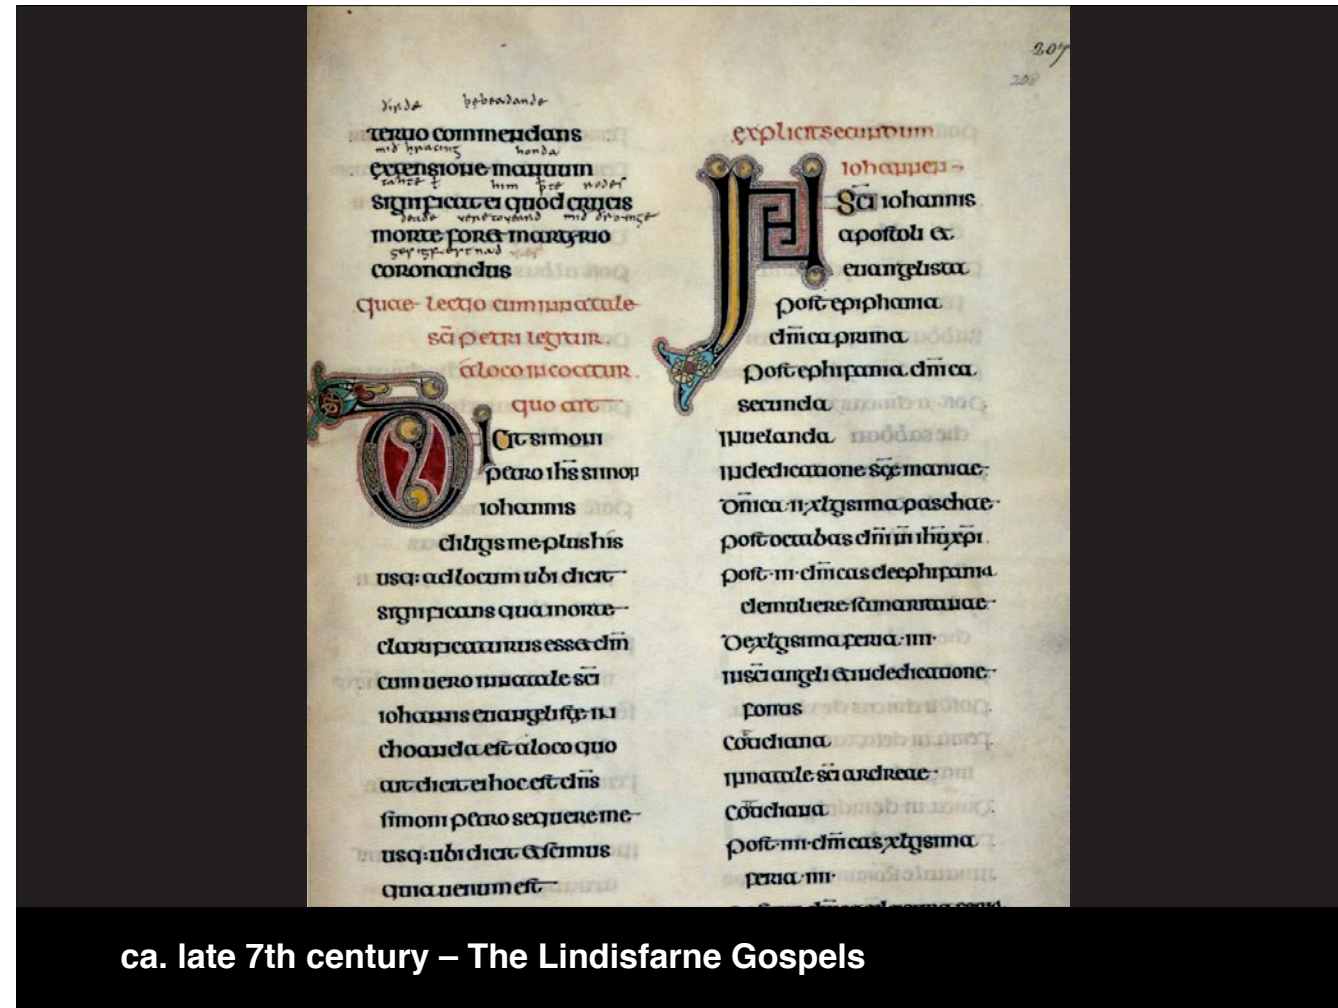 207
208
tertio commendans
honda
extensione manuum
him
significat ei quod crucis
morte foret martyrio
coronandus
quae lectio cum in natale
sc̄i petri legitur
a loco incoatur
quo ait
Dicit simoni
petro ih̄s simon
iohannis
diligis me plus his
usq: ad locum ubi dicit
significans qua morte
clarificaturus esset dm̄
cum uero in natale sc̄i
iohannis euangelistę in
choanda est a loco quo
ait dicit ei hoc est dn̄s
simoni petro sequere me
usq: ubi dicit et scimus
quia uerum est
explicit secundum
iohannen
IN Sc̄i iohannis
apostoli et
euangelista
post epiphania
dm̄ica prima
post ephifania dm̄ica
secunda
In uelanda
in dedicatione sc̄ę mariae
Dm̄ica ·ii· xlgisima paschae
post octabas dm̄i ih̄u xp̄i
post ·iii· dm̄icas de ephifania
de muliere samaritanae
De xlgisima feria ·iiii·
In sc̄i angeli et in dedicatione
fontis
Cottidiana
In natale sc̄i andreae
Cottidiana
post ·iiii· dm̄icas xlgisima
feria ·iiii·
ca. late 7th century – The Lindisfarne Gospels